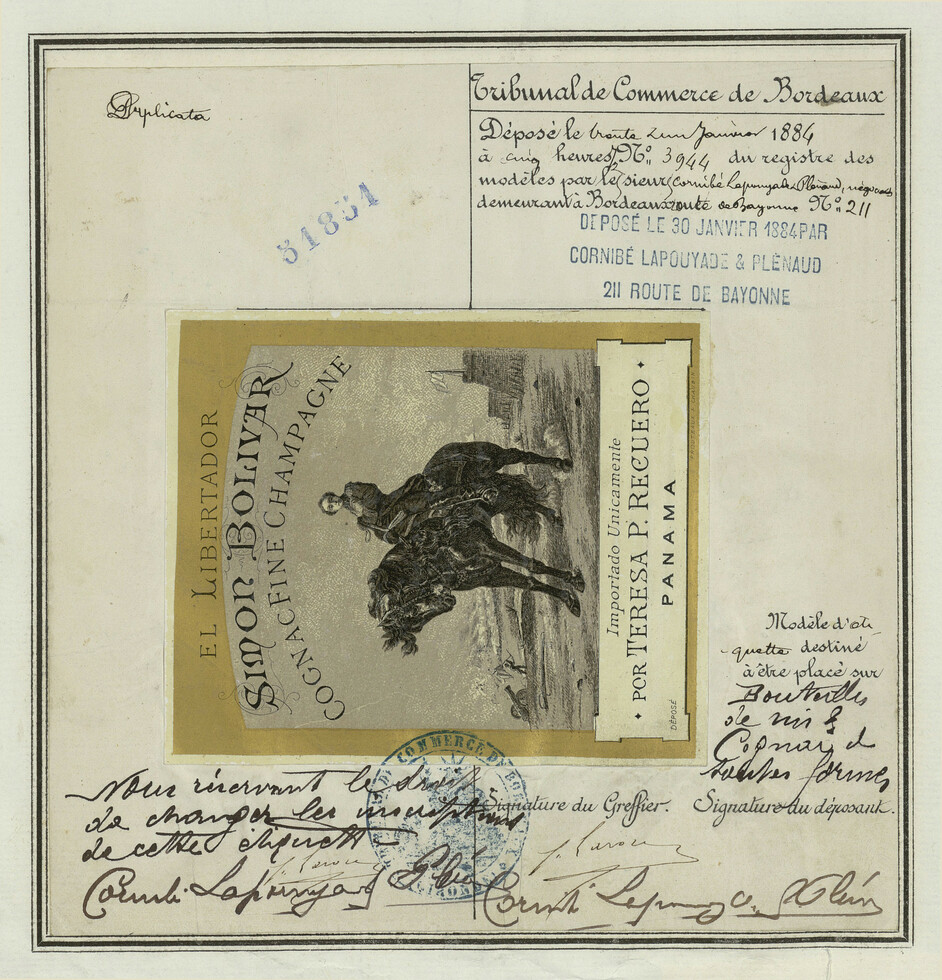 Duplicata
31831
Tribunal de Commerce de Bordeaux
Déposé le trente & un Janvier 1884
à cinq heures, N° 3944 du registre des
modèles par le sieur Cornibé Lapouyade & Plénaud, négociants
demeurant à Bordeaux route de Bayonne N° 211
DEPOSÉ LE 30 JANVIER 1884 PAR
CORNIBÉ LAPOUYADE & PLÉNAUD
211 ROUTE DE BAYONNE
EL LIBERTADOR
SIMON BOLIVAR
COGNAC FINE CHAMPAGNE
Importado Unicamente
POR TERESA P. RECUERO
PANAMA
DÉPOSÉ
Modèle d'éti-
quette destiné
à être placé sur
Bouteilles
de vin &
Cognac de
toutes formes
Nous réservant le droit
de changer les inscriptions
de cette étiquette
Signature du Greffier. Signature du déposant.
Cornibé Lapouyade & Plénaud
Cornibé Lapouyade & Plénaud